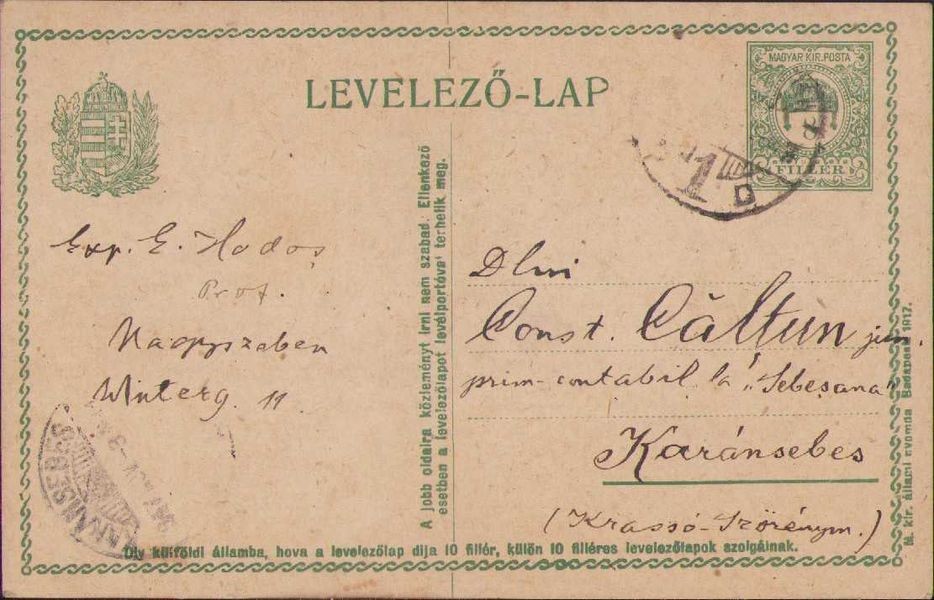 LEVELEZŐ-LAP
MAGYAR KIR. POSTA
FILLÉR
Exp. E. Hodoș
Prof.
Nagyszeben
Winterg. 11
A jobb oldalra közleményt irni nem szabad. Ellenkező
esetben a levelezőlapot levélportóval terhelik meg.
Dlui
Const. Căltun jun.
prim-contabil la „Sebeșana"
Karánsebes
(Krassó-Szörénym.)
KARÁNSEBES
Oly külföldi államba, hova a levelezőlap dija 10 fillér, külön 10 filléres levelezőlapok szolgálnak.
M. kir. állami nyomda Budapest 1917.